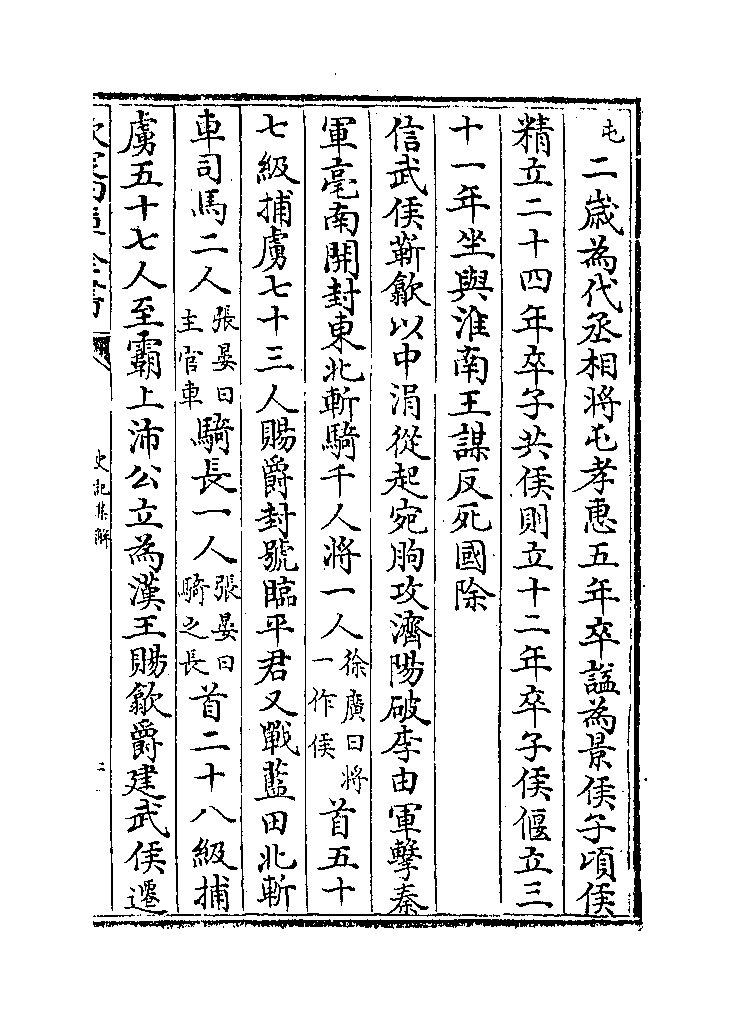 屯二歲為代丞相將屯孝惠五年卒諡為景侯子頃侯
精立二十四年卒子共侯則立十二年卒子侯偃立三
十一年坐與淮南王謀反死國除
信武侯蘄歙以中涓從起宛朐攻濟陽破李由軍擊秦
軍亳南開封東北斬騎千人將一人徐廣曰將一作侯首五十
七級捕虜七十三人賜爵封號臨平君又戰藍田北斬
車司馬二人張晏曰主官車騎長一人張晏曰騎之長首二十八級捕
虜五十七人至霸上沛公立為漢王賜歙爵建武侯遷
史記集解